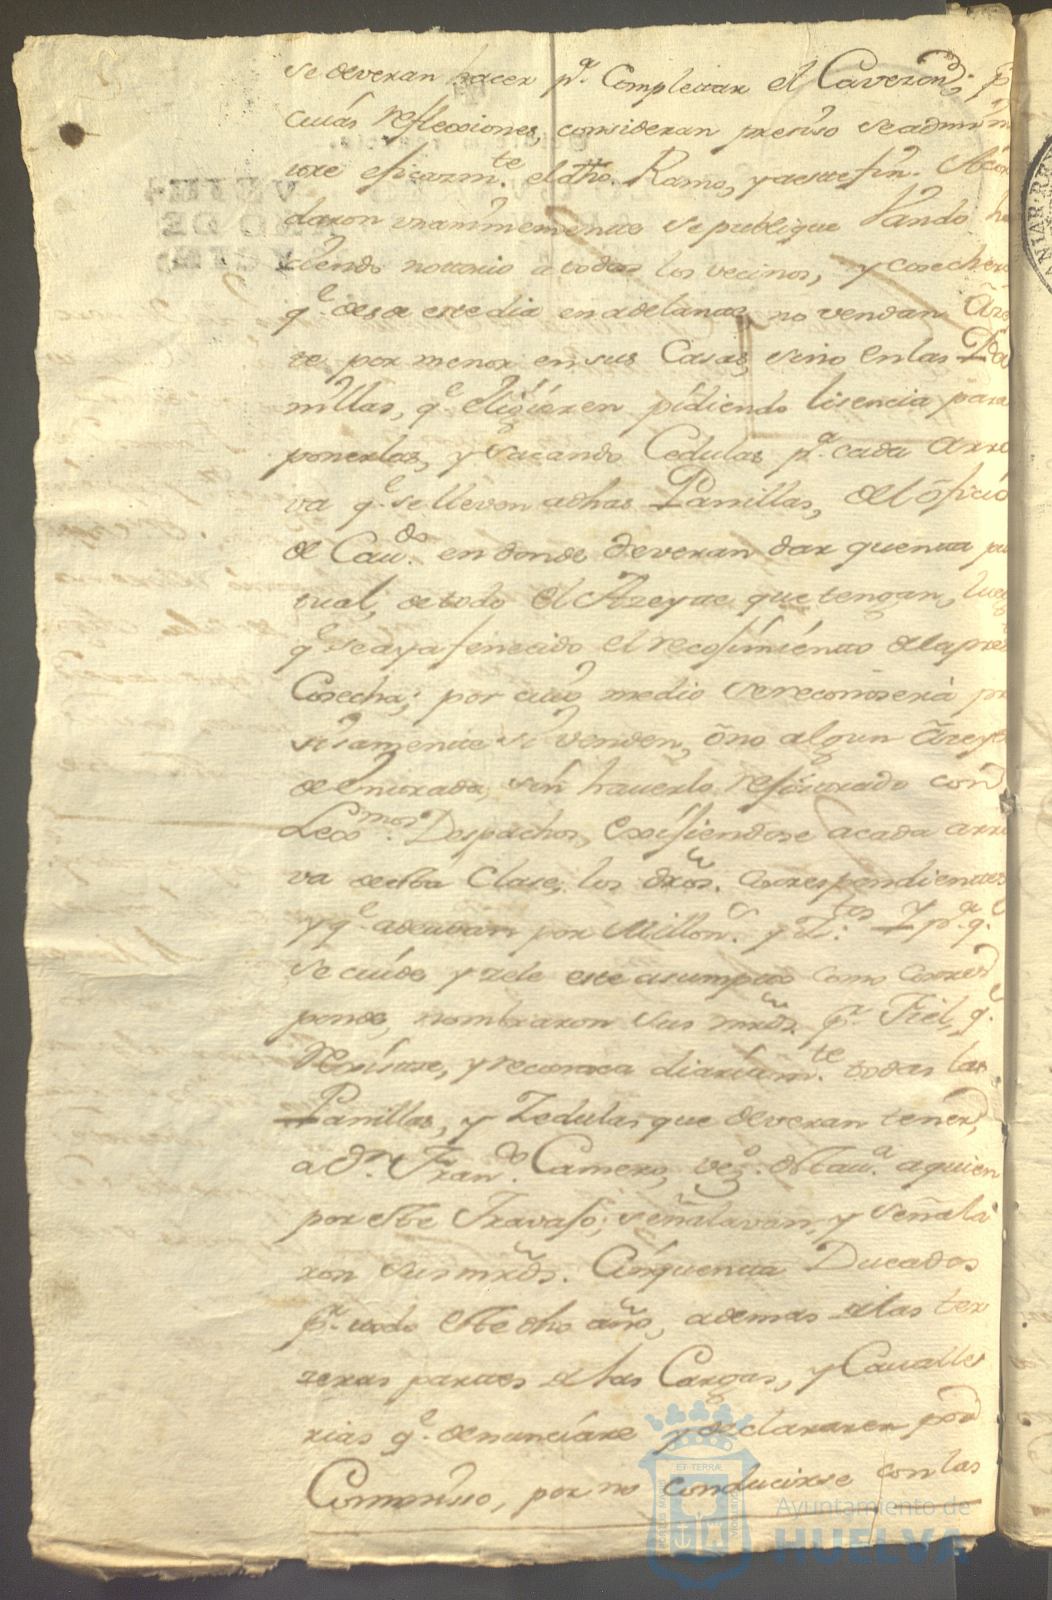 se deveran hacer pª. Completar el Cavezon; pʳ
cuias reflecciones, consideran presiso se admin
tre eficazmᵗᵉ. el dho. Ramo, y a este fin. Acor
daron unanimemente se publique Vando ha
ciendo notorio a todos los vecinos, y cosecher
qᵉ. desde este dia en adelante, no vendan Azei
te por menor en sus Casas, sino en las Pa
nillas, qᵉ. eligieren pidiendo lisencia para
ponerlas, y sacando Cedulas pª. cada arro
va qᵉ. se lleven a dhas Panillas, del ofisio
de Cavᵈᵒ. en donde deveran dar quenta pu
tual, de todo el Azeyte que tengan, lueg
qᵉ. se aya fenecido el recojimiento de la pres
Cosecha; por cuio medio se reconoserà pre
sisamente si venden, ô no algun Azeyte
de entrada, sin haverlo rejistrado con
Lexmos. Despachos, exijiendose a cada arro
va de esta Clase, los dros. Correspondientes
y qᵉ. adeudan por Millonˢ. y pª. qᵉ.
se cuide y zele este asumpto como corres
ponde, nombraron sus mrds. pʳ. Fiel, qᵉ.
revisase, y reconosca diariamᵗᵉ. todas las
Panillas, y Zedulas que deveran tener,
a Dⁿ. Franᶜᵒ. Camero, vezº. de esta vª. a quien
por este Travajo; señalavan, y señala
ron sus mrds. Cinquenta Ducados
pʳ. todo este dho año, ademas de las ter
zeras partes de las Cargas, y Cavalle
rias qᵉ. denunciare y declararen por
Comminso, por no conducirse con las
ET TERRÆ
Ayuntamiento de
HUELVA